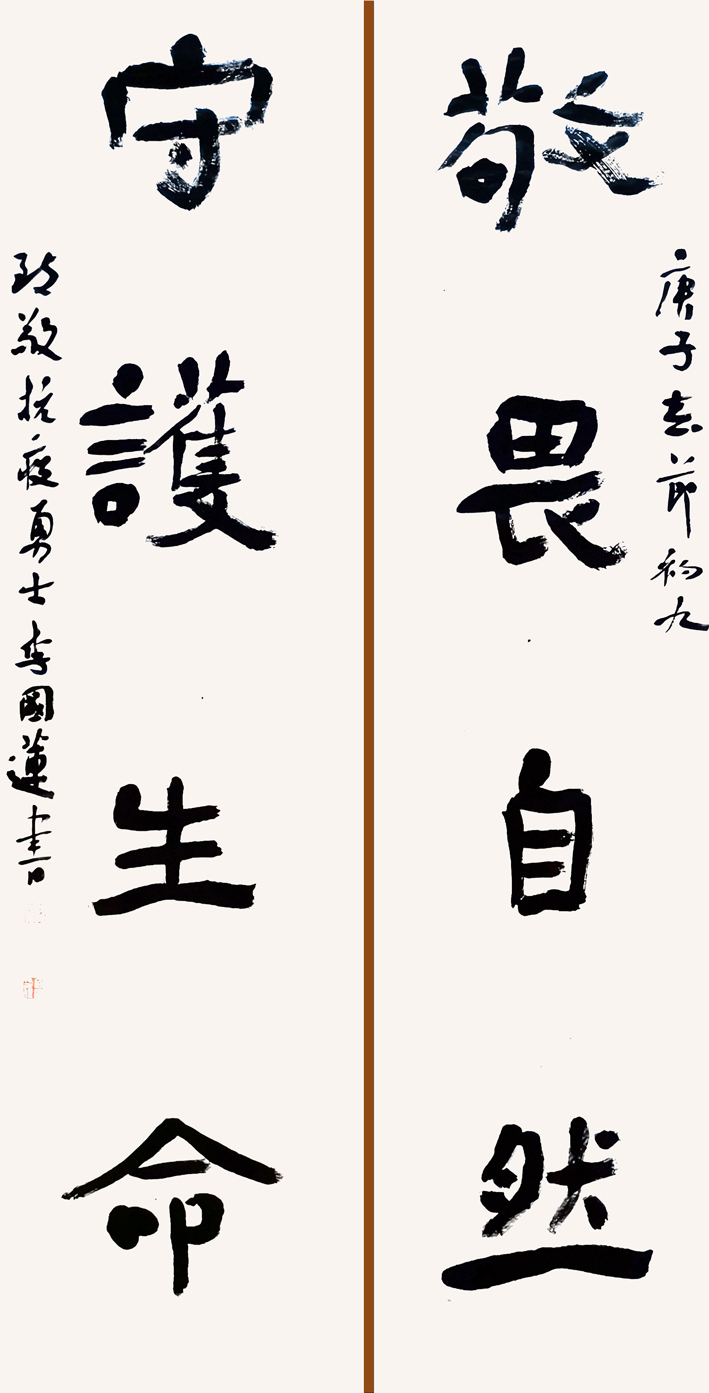 庚子春節初九
敬畏自然
守護生命
致敬抗疫勇士李國蓮書